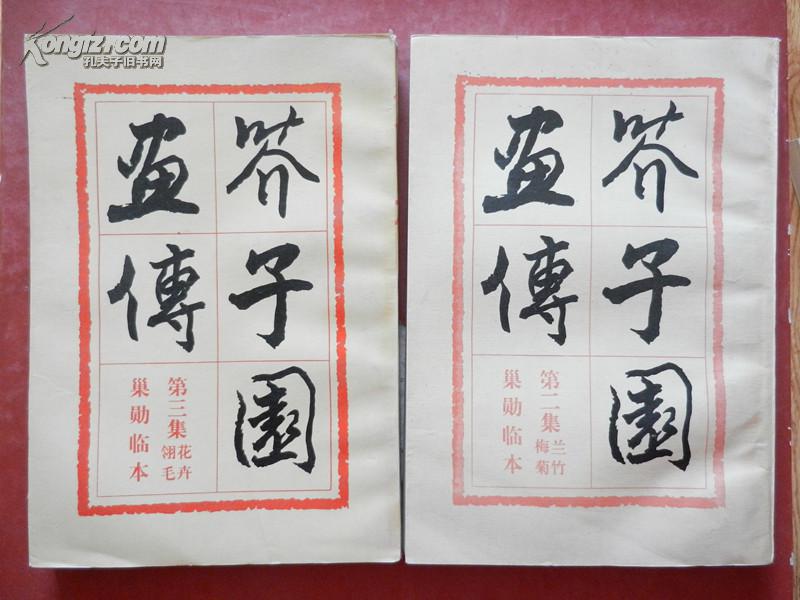 Kongfz.com
孔夫子旧书网
芥子園
畫傳
第三集 花卉
翎毛
巢勋临本
芥子園
畫傳
第二集 兰竹
梅菊
巢勋临本